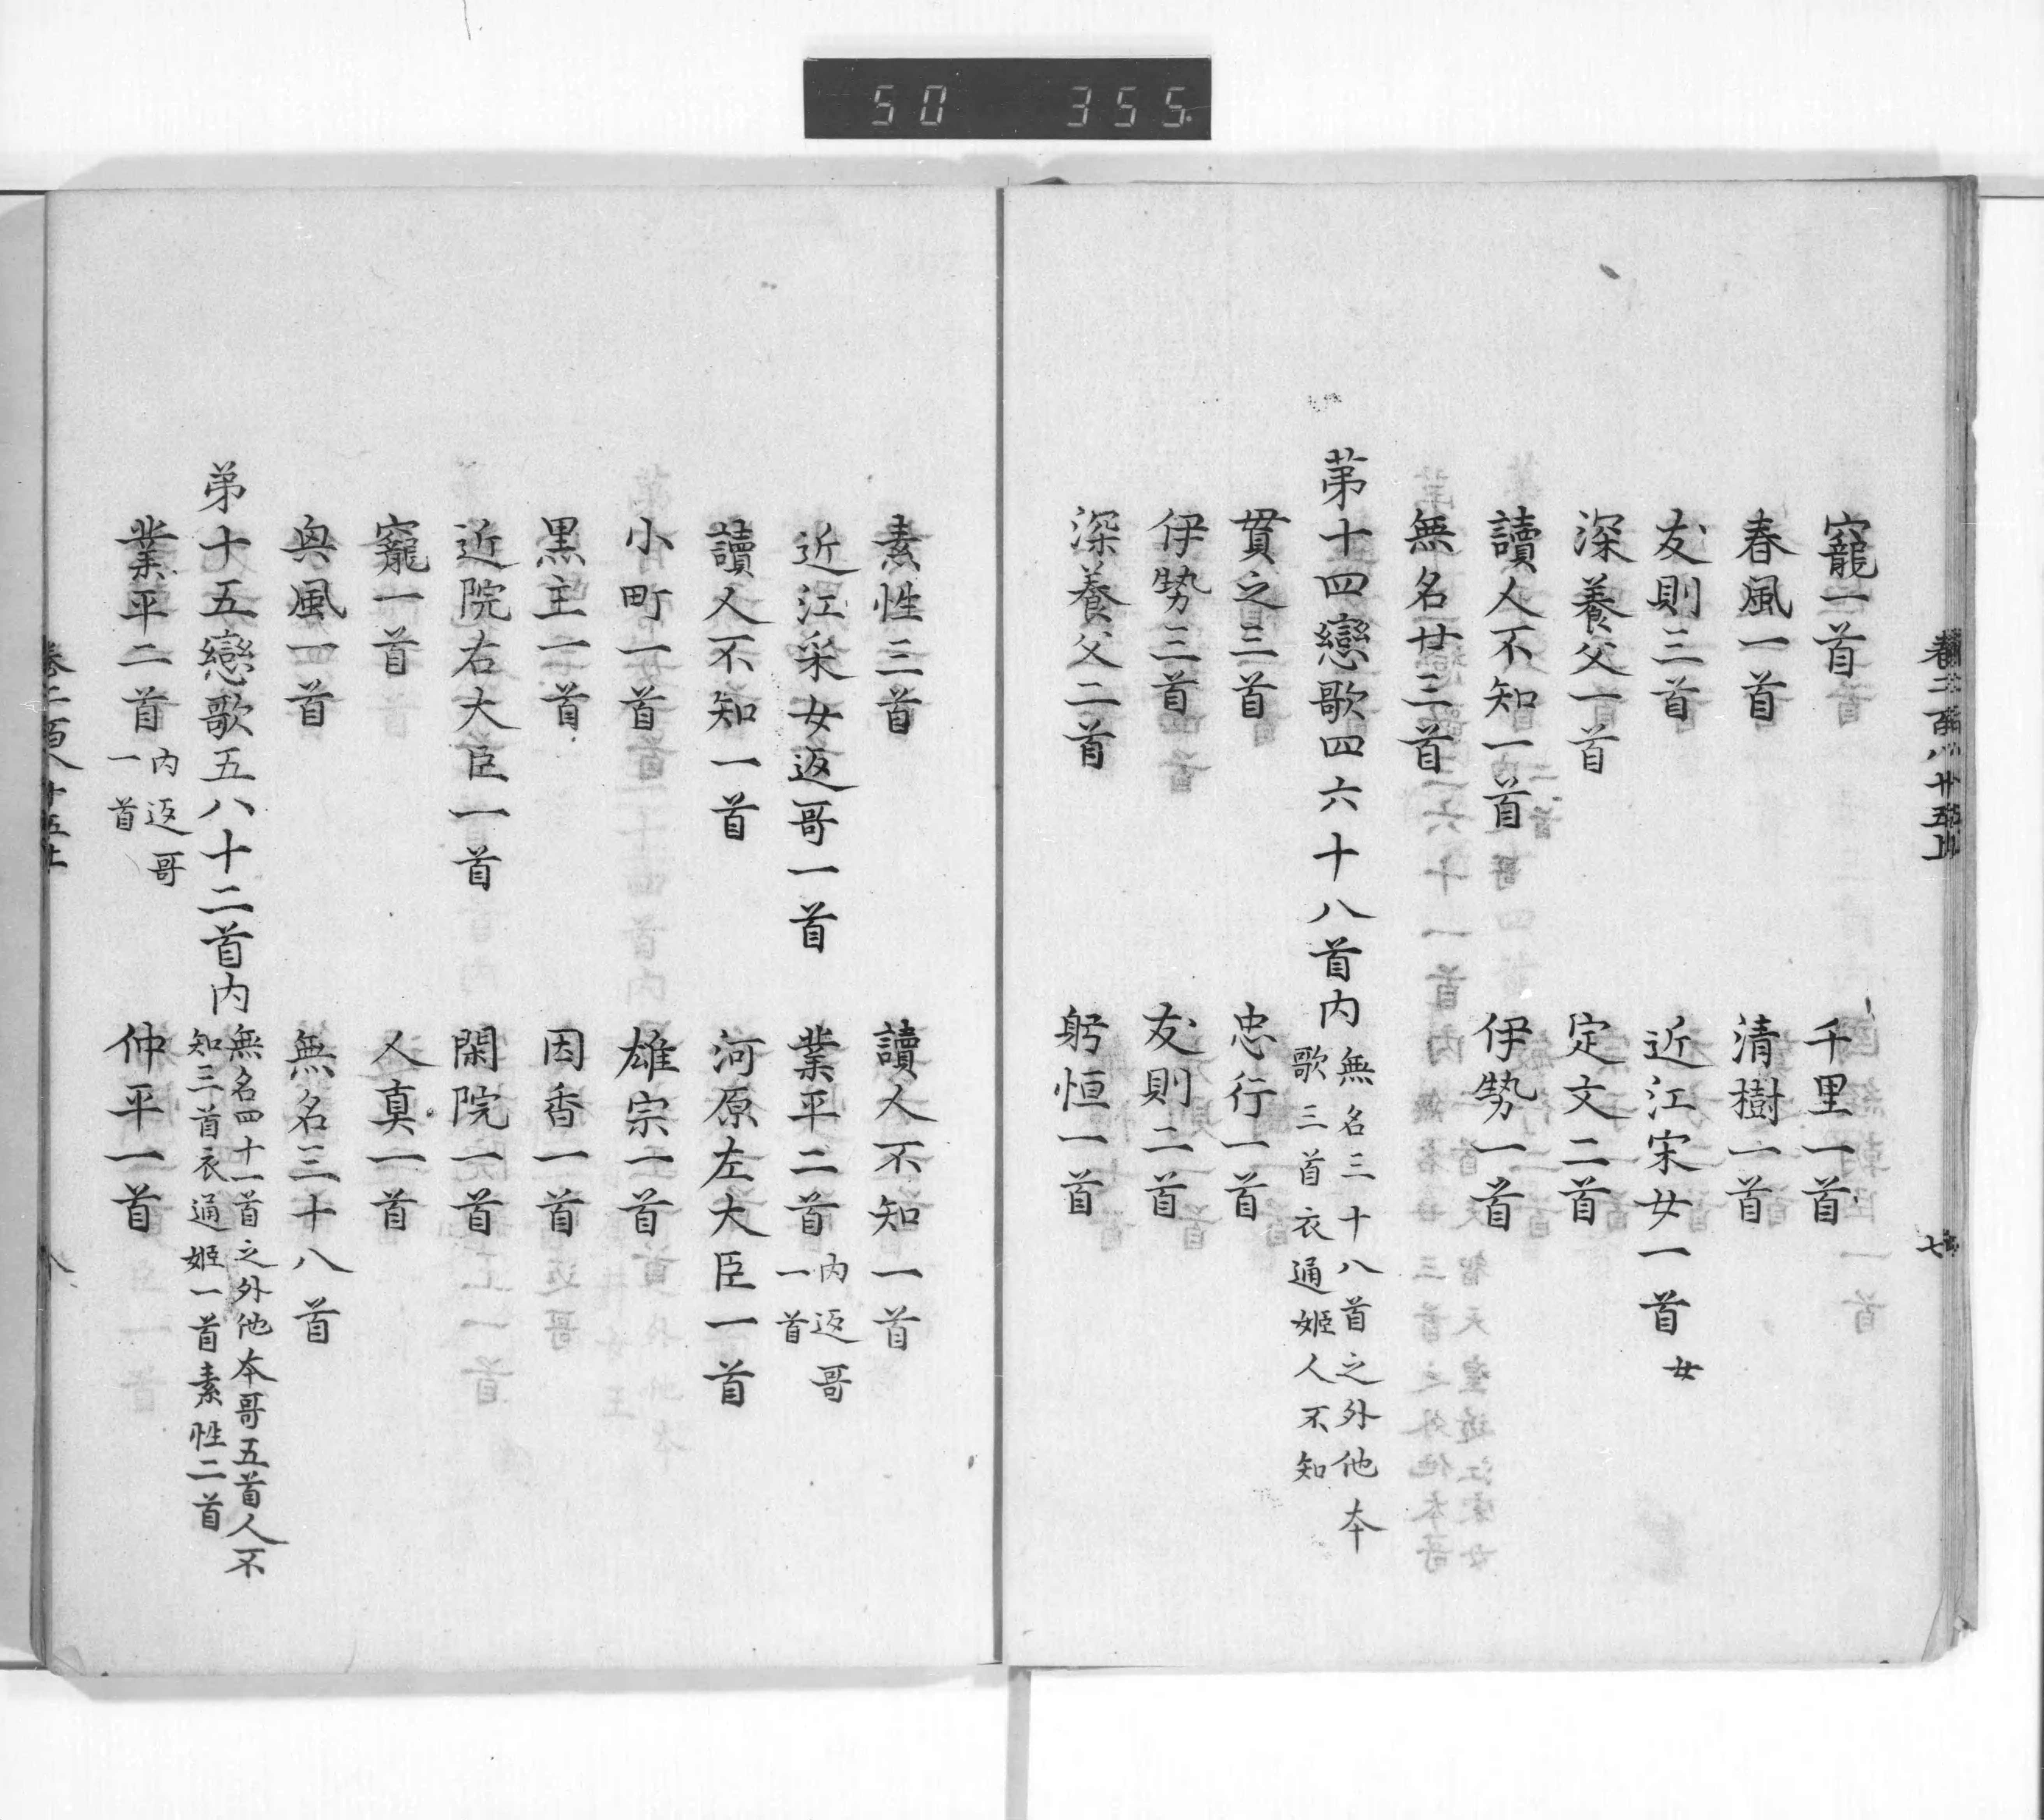 50 355
寵一首 千里一首
春風一首 清樹一首
友則三首 近江宋女一首 女
深養父一首 定文二首
讀人不知一首 伊勢一首
無名廿三首
第十四戀歌四六十八首内 無名三十八首之外他本
歌三首衣通姬人不知
貫之三首 忠行一首
伊勢三首 友則二首
深養父二首 躬恒一首
七
素性三首 讀人不知一首
近江采女返哥一首 業平二首 内返哥
一首
讀人不知一首 河原左大臣一首
小町一首 雄宗一首
黒主一首 因香一首
近院右大臣一首 閑院一首
寵一首 人真一首
奥風一首 無名三十八首
弟十五戀歌五八十二首内 無名四十一首之外他本哥五首人不
知三首衣通姬一首素性二首
業平二首 内返哥
一首 仲平一首
八